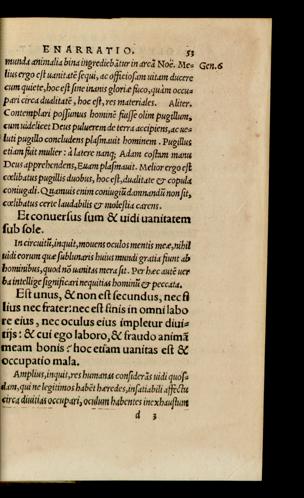 ENARRATIO. 53
munda animalia bina ingrediebãtur in arcã Noë. Me- Gen.6
lius ergo est uanitatẽ sequi, ac officiosam uitam ducere
cum quiete, hoc est sine inanis gloriæ fuco, quàm occu
pari circa dualitatẽ, hoc est, res materiales. Aliter.
Contemplari possumus hominẽ fuisse olim pugillum,
cum uidelicet Deus puluerem de terra accipiens, ac ue-
luti pugillo concludens plasmauit hominem. Pugillus
etiam fuit mulier: à latere nanq; Adam costam manu
Deus apprehendens, Euam plasmauit. Melior ergo est
cœlibatus pugillis duobus, hoc est, dualitate & copula
coniugali. Quamuis enim coniugiũ damnandũ non sit,
cœlibatus certè laudabilis & molestia carens.
Et conuersus sum & uidi uanitatem
sub sole.
In circuitũ, inquit, mouens oculos mentis meæ, nihil
uidi eorum quæ sublunaris huius mundi gratia fiunt ab
hominibus, quod nõ uanitas mera sit. Per hæc autẽ uer
ba intellige significari nequitias hominũ & peccata.
Est unus, & non est secundus, nec fi
lius nec frater: nec est finis in omni labo
re eius, nec oculus eius impletur diui-
tijs: & cui ego laboro, & fraudo animã
meam bonis? hoc etiam uanitas est &
occupatio mala.
Amplius, inquit, res humanas considerãs uidi quos-
dam, qui ne legitimos habẽt hæredes, insatiabili affectu
circa diuitias occupari, oculum habentes inexhaustum
d 3